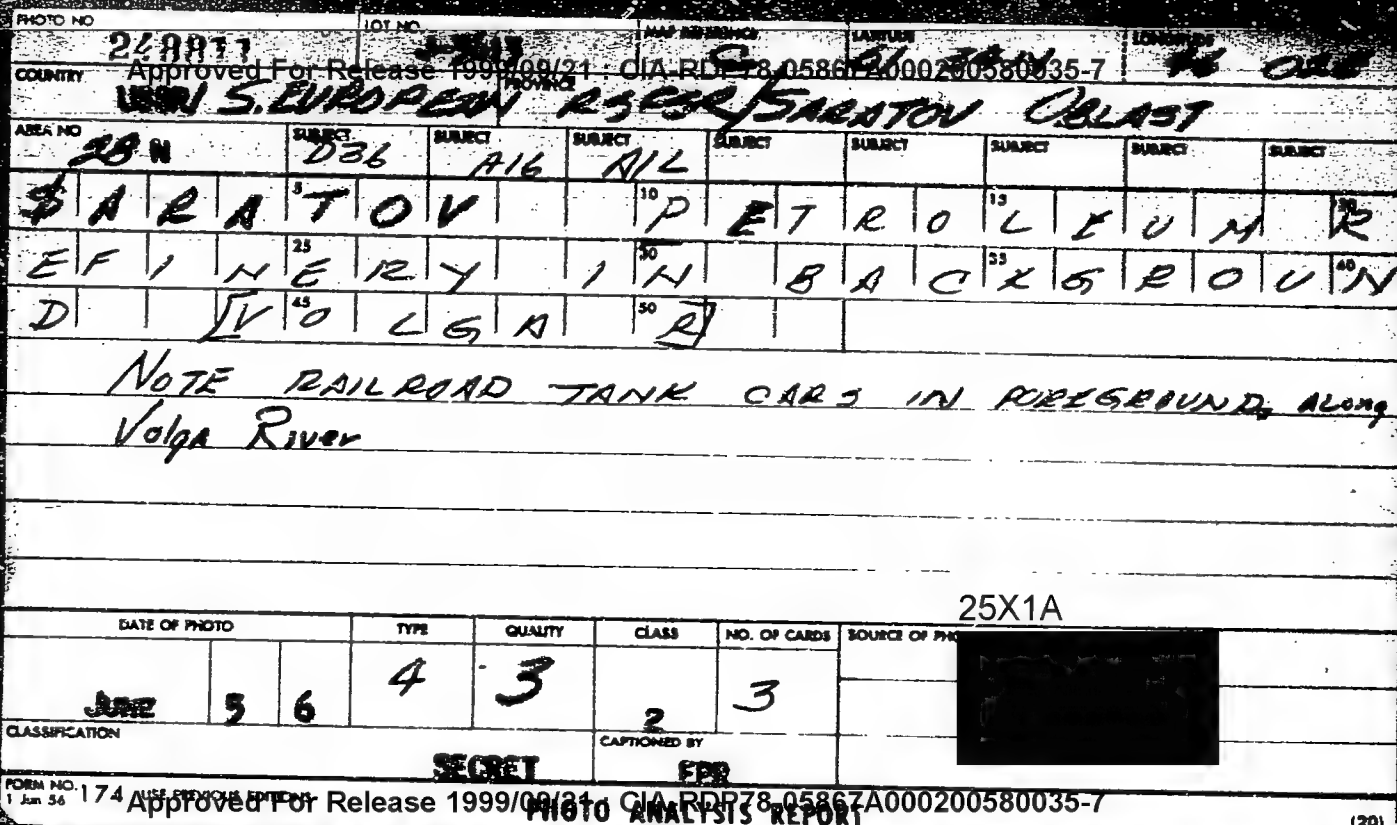 PHOTO NO LOT NO MAP REFERENCE LATITUDE LONGITUDE
248811
Approved For Release 1999/09/21 : CIA-RDP78-05867A000200580035-7
COUNTRY PROVINCE
USSR S. EUROPEAN RSFSR/SARATOV OBLAST
AREA NO SUBJECT SUBJECT SUBJECT SUBJECT SUBJECT SUBJECT SUBJECT SUBJECT
28 N D36 A16 A/L
5 10 15 20
SARATOV PETROLEUM R
25 30 35 40
EFINERY IN BACKGROUN
45 50
D [VOLGA R]
NOTE RAILROAD TANK CARS IN FOREGROUND, ALONG
Volga River
25X1A
DATE OF PHOTO TYPE QUALITY CLASS NO. OF CARDS SOURCE OF
JUNE 5 6 4 3 2 3
CLASSIFICATION CAPTIONED BY
SECRET FPR
FORM NO. 174 USE PREVIOUS EDITIONS
1 Jun 56
Approved For Release 1999/09/21 : CIA-RDP78-05867A000200580035-7
PHOTO ANALYSIS REPORT
(20)